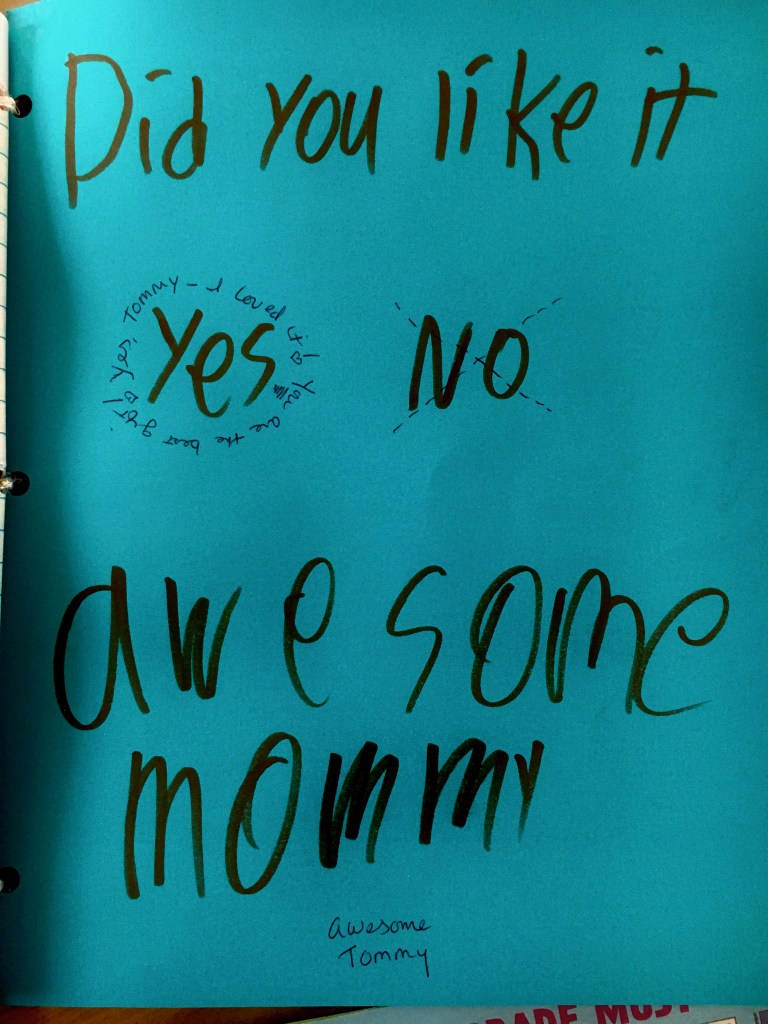 Did you like it
Yes
Yes, Tommy - I loved it! You are the best gift!
NO
awesome
mommy
awesome
Tommy
RADE MUST